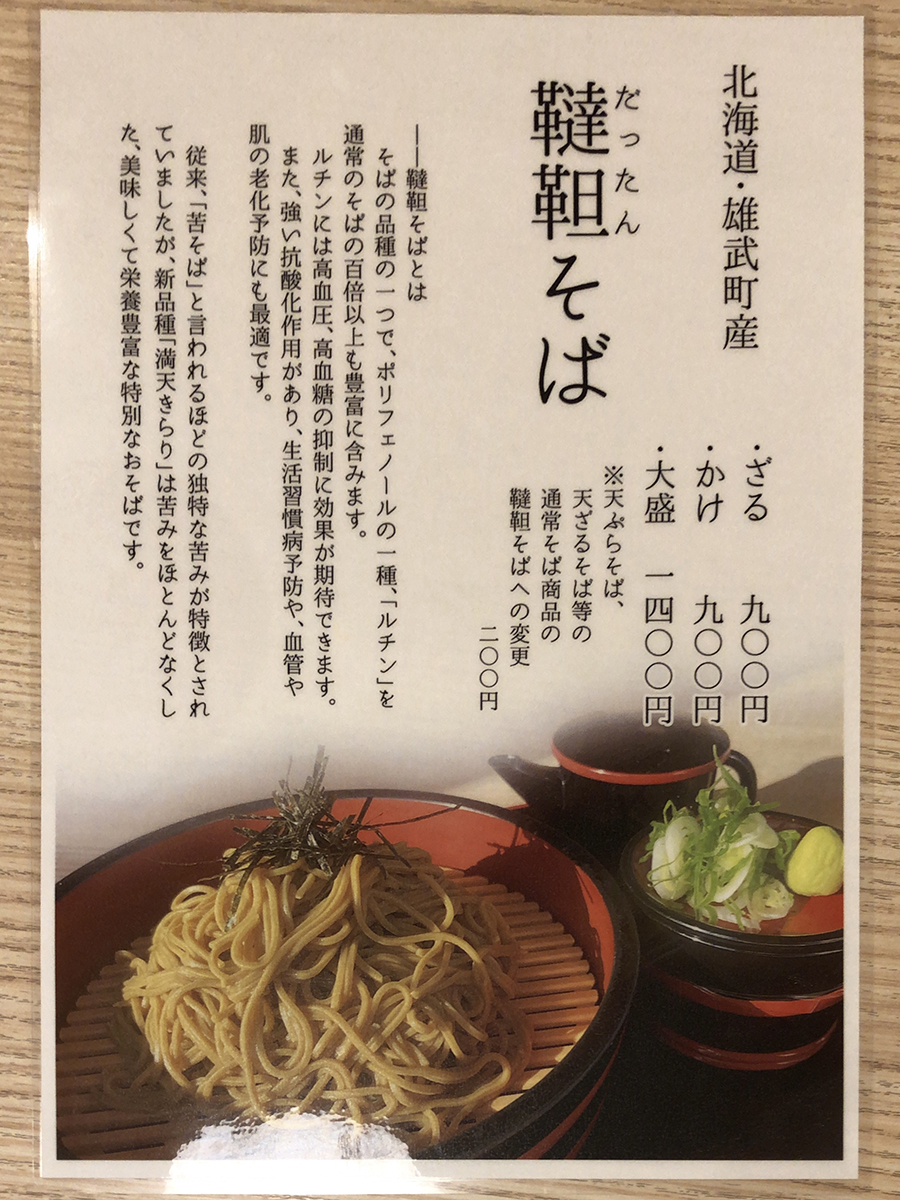 北海道・雄武町産
だったん
韃靼そば
・ざる 九〇〇円
・かけ 九〇〇円
・大盛 一四〇〇円
※天ぷらそば、
天ざるそば等の
通常そば商品の
韃靼そばへの変更
二〇〇円
――韃靼そばとは
そばの品種の一つで、ポリフェノールの一種、「ルチン」を
通常のそばの百倍以上も豊富に含みます。
ルチンには高血圧、高血糖の抑制に効果が期待できます。
また、強い抗酸化作用があり、生活習慣病予防や、血管や
肌の老化予防にも最適です。
従来、「苦そば」と言われるほどの独特な苦みが特徴とされ
ていましたが、新品種「満天きらり」は苦みをほとんどなくし
た、美味しくて栄養豊富な特別なおそばです。